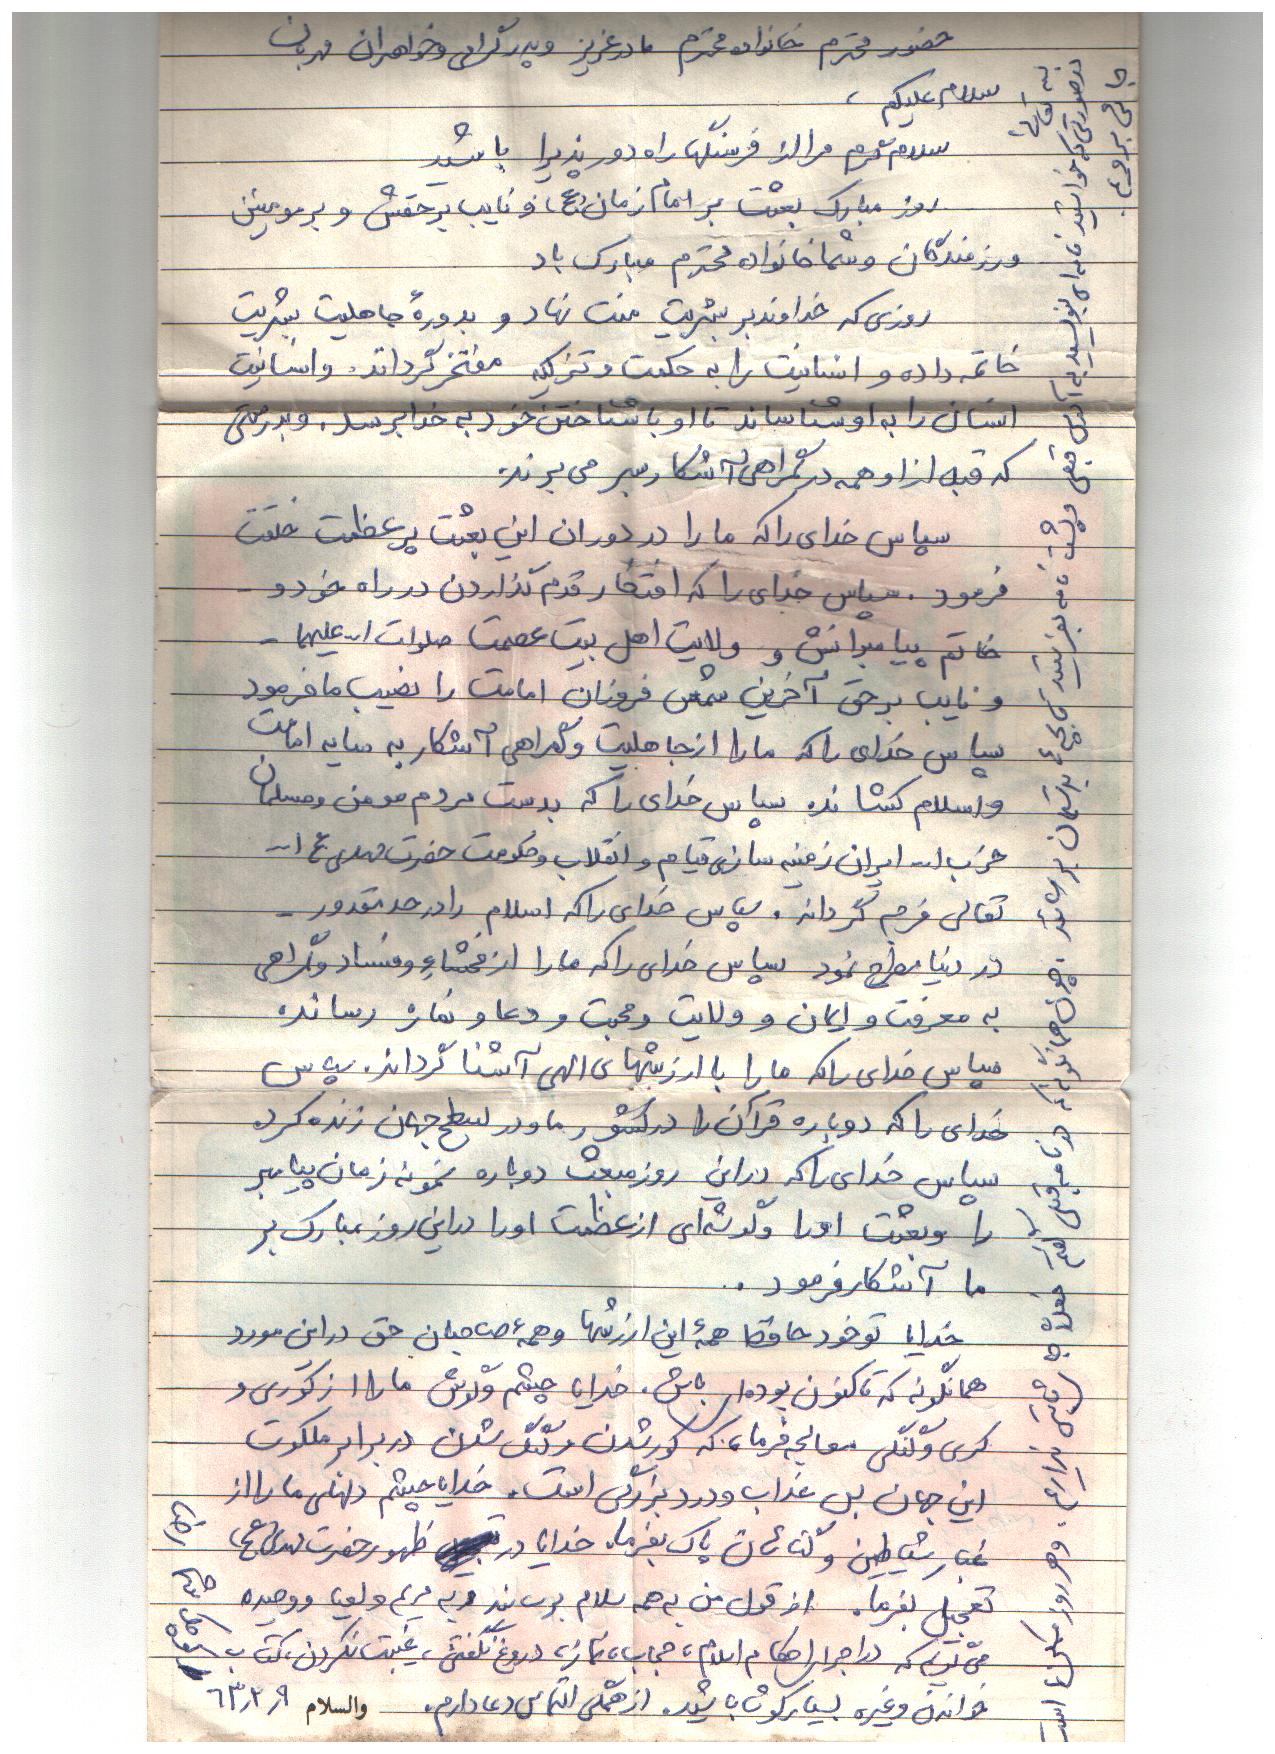 حضور محترم خانواده محترم مادر عزیز و پدر گرامی و خواهران مهربان
سلام علیکم،
سلام گرم مرا از فرسنگها راه دور پذیرا باشید
روز مبارک بعثت بر امام زمان (عج) و نایب برحقش و بر مومنین
و رزمندگان و شما خانواده محترم مبارک باد
روزی که خداوند بر بشریت منت نهاد و بدورهٔ جاهلیت بشریت
خاتمه داده و انسانیت را به حکمت و تزکیه مفتخر گرداند. و انسانیت
انسان را به او شناساند تا او با شناختن خود به خدا برسد. و بدرستی
که قبل از او همه در گمراهی آشکار بسر می بردند.
سپاس خدای را که ما را در دوران این بعثت پر عظمت خلقت
فرمود. سپاس خدای را که افتخار قدم گذاردن در راه خود و -
خاتم پیامبرانش و ولایت اهل بیت عصمت صلوات ا... علیهما -
و نایب بر حق آخرین شمس فروزان امامت را نصیب ما فرمود
سپاس خدای را که ما را از جاهلیت و گمراهی آشکار به سایه امامت
و اسلام کشانده سپاس خدای را که بدست مردم مومن و مسلمان
حزب ا... ایران زمینه سازی قیام و انقلاب و حکومت حضرت مهدی عج ا...
تعالی فرجه گرداند. سپاس خدای را که اسلام را در حد مقدور -
در دنیا مطرح نمود سپاس خدای را که ما را از فحشاء و فساد و گمراهی
به معرفت و ایمان و ولایت و محبت و دعا و نماز رسانده
سپاس خدای را که ما را با ارزشهای الهی آشنا گرداند. سپاس
خدای را که دوباره قرآن را در کشور ما و در سطح جهان زنده کرد
سپاس خدای را که در این روز مبعث دوباره نمونه زمان پیامبر
را و بعثت او را و گوشه ای از عظمت او را در این روز مبارک بر
ما آشکار فرمود.
خدایا تو خود حافظ همهٔ این ارزشها و همهٔ صاحبان حق در این مورد
همانگونه که تاکنون بوده ای باش. خدایا چشم و گوش ما را از کوری و
کری و گنگی معالجه فرما، که کور شدن و گنگ شدن در برابر ملکوت
این جهان بس عذاب و درد بزرگی است. خدایا چشم دلهای ما را از
غبار شیاطین و گناهان پاک بفرما. خدایا در ظهور حضرت مهدی (عج)
تعجیل بفرما. از قول من به همه سلام برسانید و به مریم و لعیا و وحیده
می گویم که در اجرای احکام اسلام، حجاب، نماز، دروغ نگفتن، غیبت نکردن، کتاب
خواندن و غیره بسیار کوشا باشید. از همگی التماس دعا دارم. والسلام ۶۳٫۲٫۹
رضا
در صورتی که خواستید نامه ای بنویسید به آدرس قبلی پشت نامه بفرستید تا بچه ها بدستمان برسانند. چون همانگونه که در نامه قبلی گفتم فعلاً جای ثابتی نداریم، و هر روز ممکن است
جائی برویم.